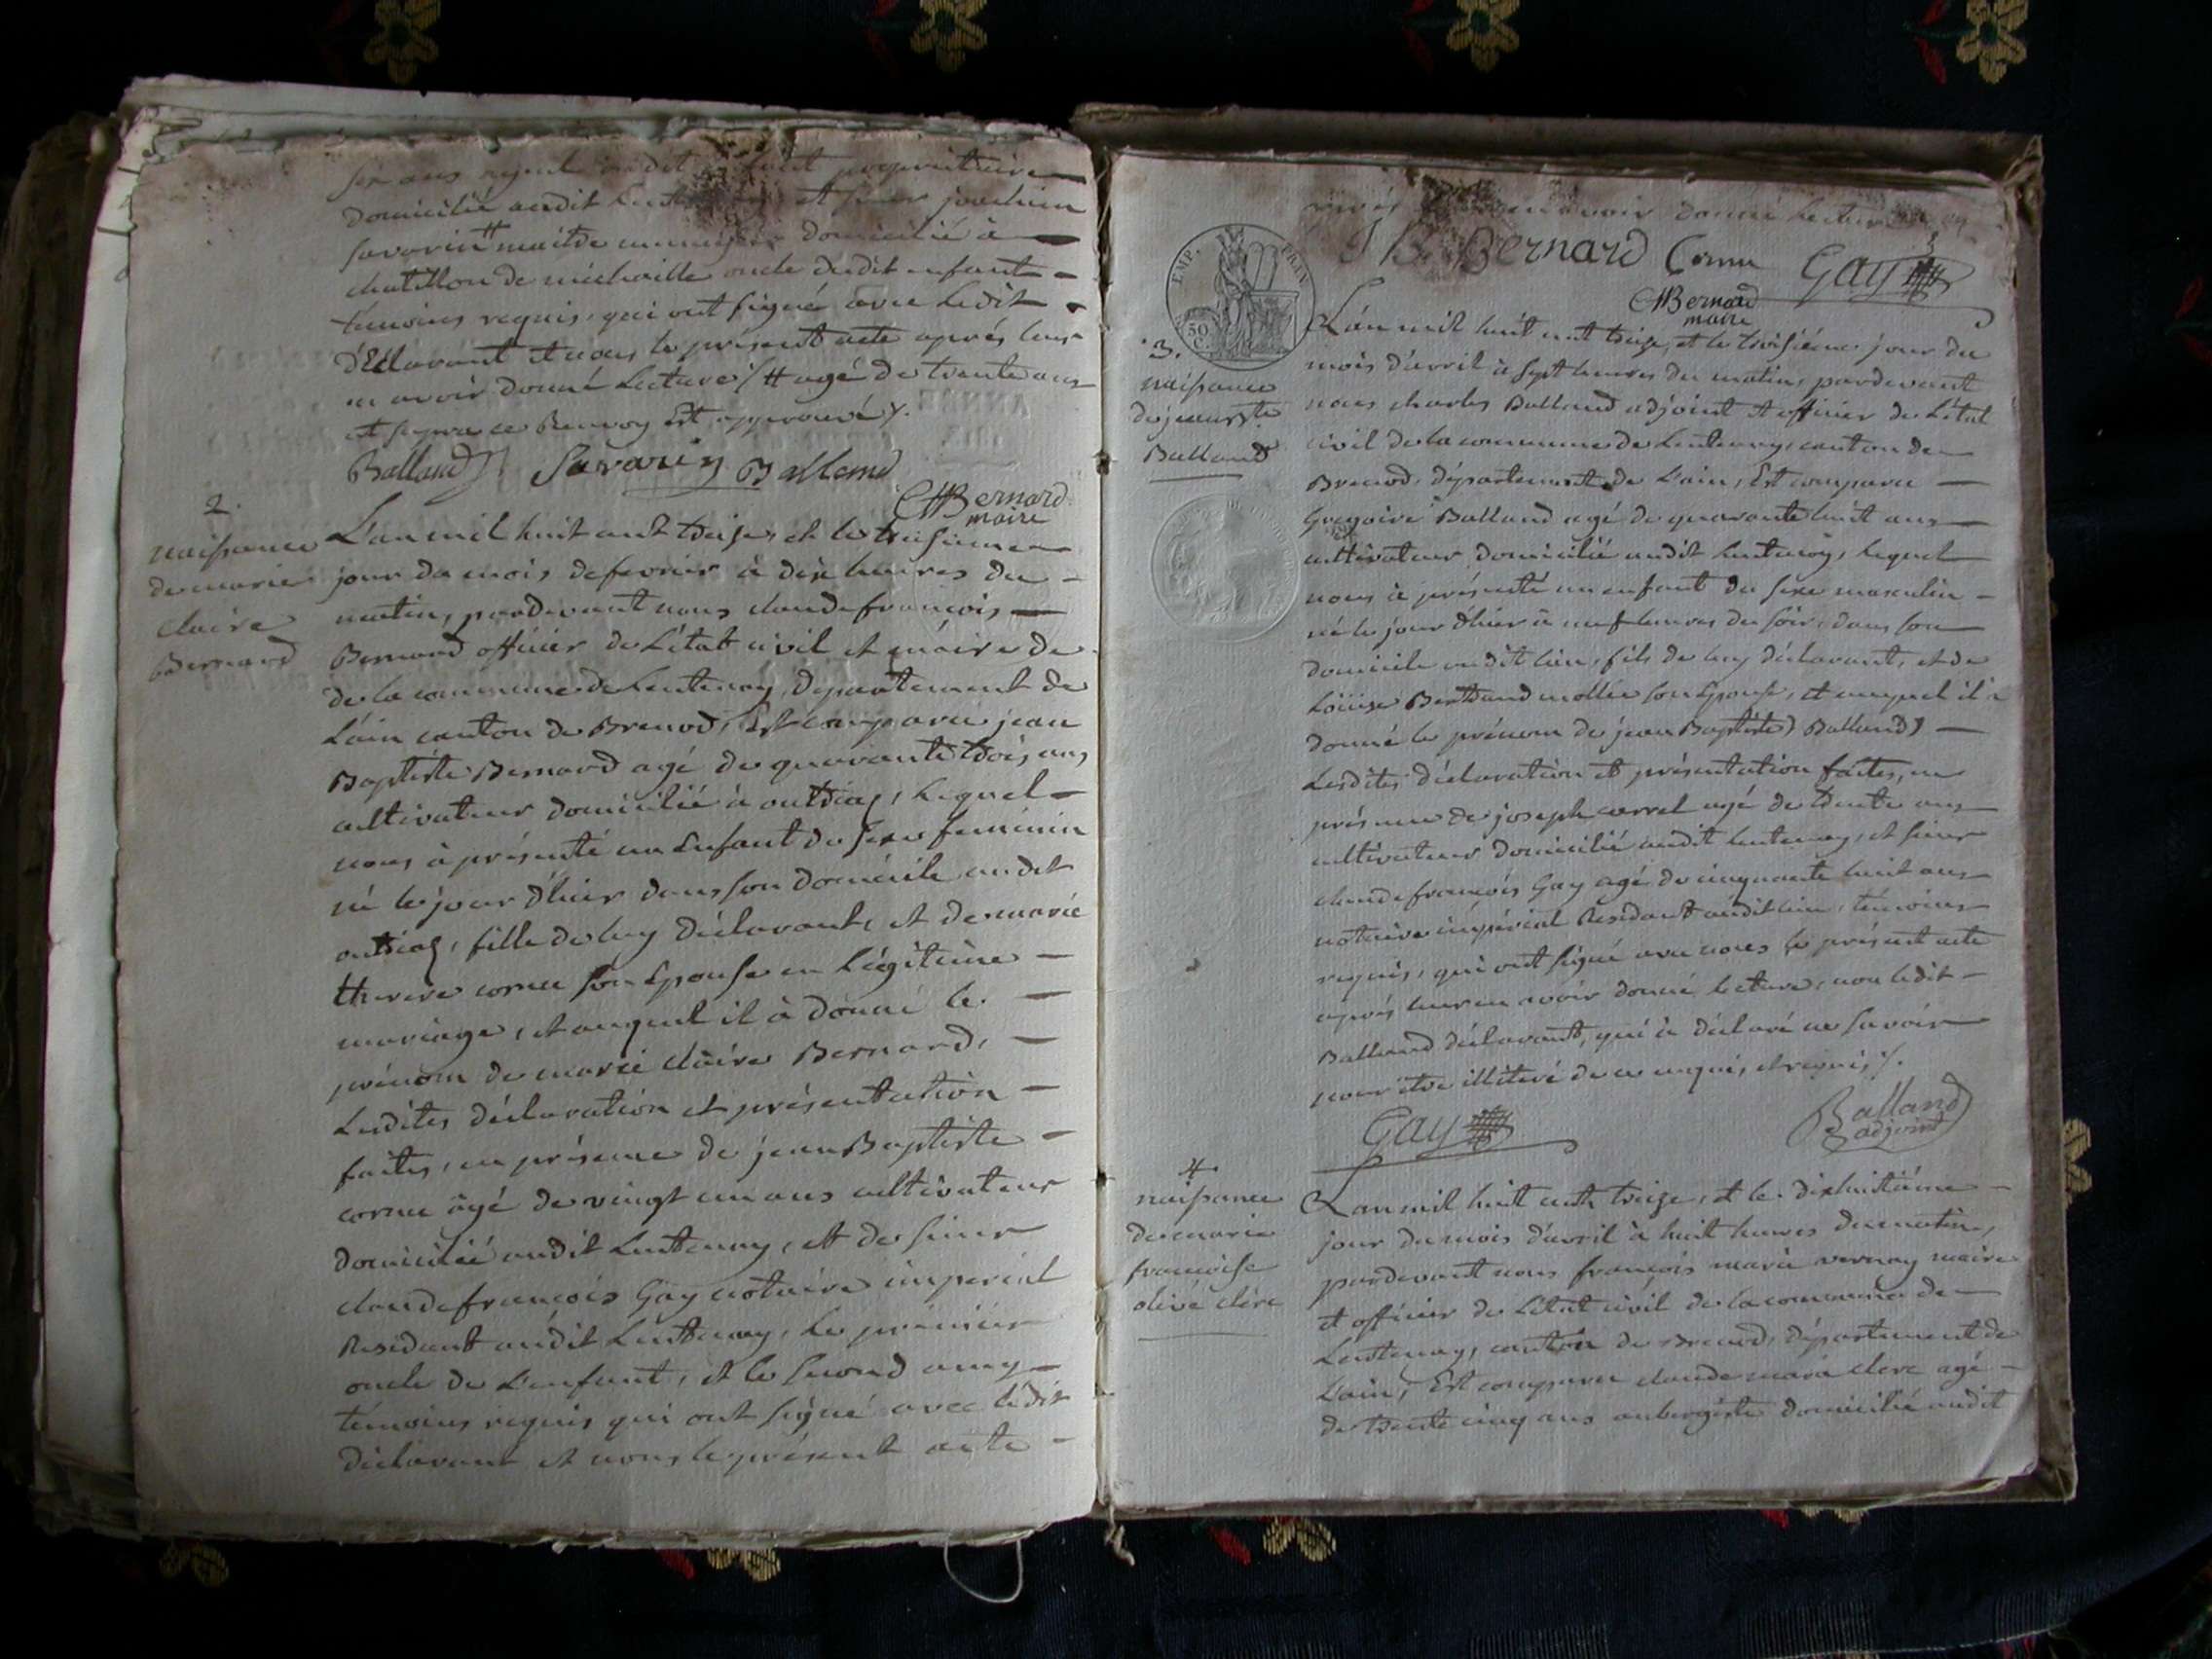 six ans propriétaire
domicilié audit Lentenay et sieur joachim
savarin # domicilié à
chatillon de michaille oncle dudit enfant
témoins requis, qui ont signé avec ledit
déclarant et nous le présent acte après leur
en avoir donné Lecture (# agé de trente ans
et Renvoy Est approuvé)/.
Balland Savarin Balland
CfBernard
maire
2.
naissance
de marie
claire
Bernard
L'an mil huit cent treize, et le troisieme
jour du mois de fevrier à dix heures du
matin, pardevant nous claude françois
Bernard officier de L'état civil et maire de
de la commune de Lentenay, département de
L'ain canton de Brenod, Est comparu jean
Baptiste Bernard agé de quarante trois ans
cultivateur domicilié à outriaz, Lequel
nous à présenté un Enfant du sexe feminin
né le jour d'hier dans son domicile audit
outriaz, fille de luy déclarant, et de marie
therese cornu son Epouse en Légitime
mariage, et auquel il à donné le
prénom de marie claire Bernard,
Lesdites déclaration et présentation
faites, en présence de jean Baptiste
cornu âgé de vingt un ans cultivateur
domicilié audit Lentenay, et de sieur
claude françois Gay notaire imperial
Residant audit Lentenay, Le premier
oncle de L'enfant, et le second amy
témoins requis qui ont signé avec ledit
déclarant et nous le présent acte
après en avoir donné Lecture
J B Bernard Cornu Gay
CfBernard
maire
EMP. FRAN.
50
C.
3.
naissance
de jean Bte
Balland
L'an mil huit cent treize, et le troisième jour du
mois d'avril à sept heures du matin, pardevant
nous charles Balland adjoint et officier de L'état
civil de la commune de Lentenay, canton de
Brenod, département de L'ain, Est comparu
Gregoire Balland agé de quarante huit ans
cultivateur domicilié audit Lentenay, Lequel
nous à présenté un enfant du sexe masculin
né le jour d'hier à neuf heures du soir, dans son
domicile audit lieu, fils de luy déclarant, et de
Loüise Bertrand mollie son Epouse, et auquel il à
donné le prénom de jean Baptiste) Balland)
Lesdites déclaration et présentation faites, en
présence de joseph carrel agé de trente ans
cultivateur domicilié audit Lentenay, et sieur
claude françois Gay agé de cinquante huit ans
notaire impérial Residant audit lieu, témoins
requis, qui ont signé avec nous le présent acte
après leur en avoir donné Lecture, non ledit
Balland déclarant, qui à déclaré ne savoir
pour être illiteré de ce enquis, et requis /.
Gay Balland
adjoint
4.
naissance
de marie
françoise
olive clerc
L'an mil huit cent treize, et le dixhuitième
jour du mois d'avril à huit heures du matin,
pardevant nous françois marie vernay maire
et officier de L'état civil de la commune de
Lentenay, canton de Brenod, département de
L'ain, Est comparu claude marie clerc agé
de trente cinq ans aubergiste domicilié audit